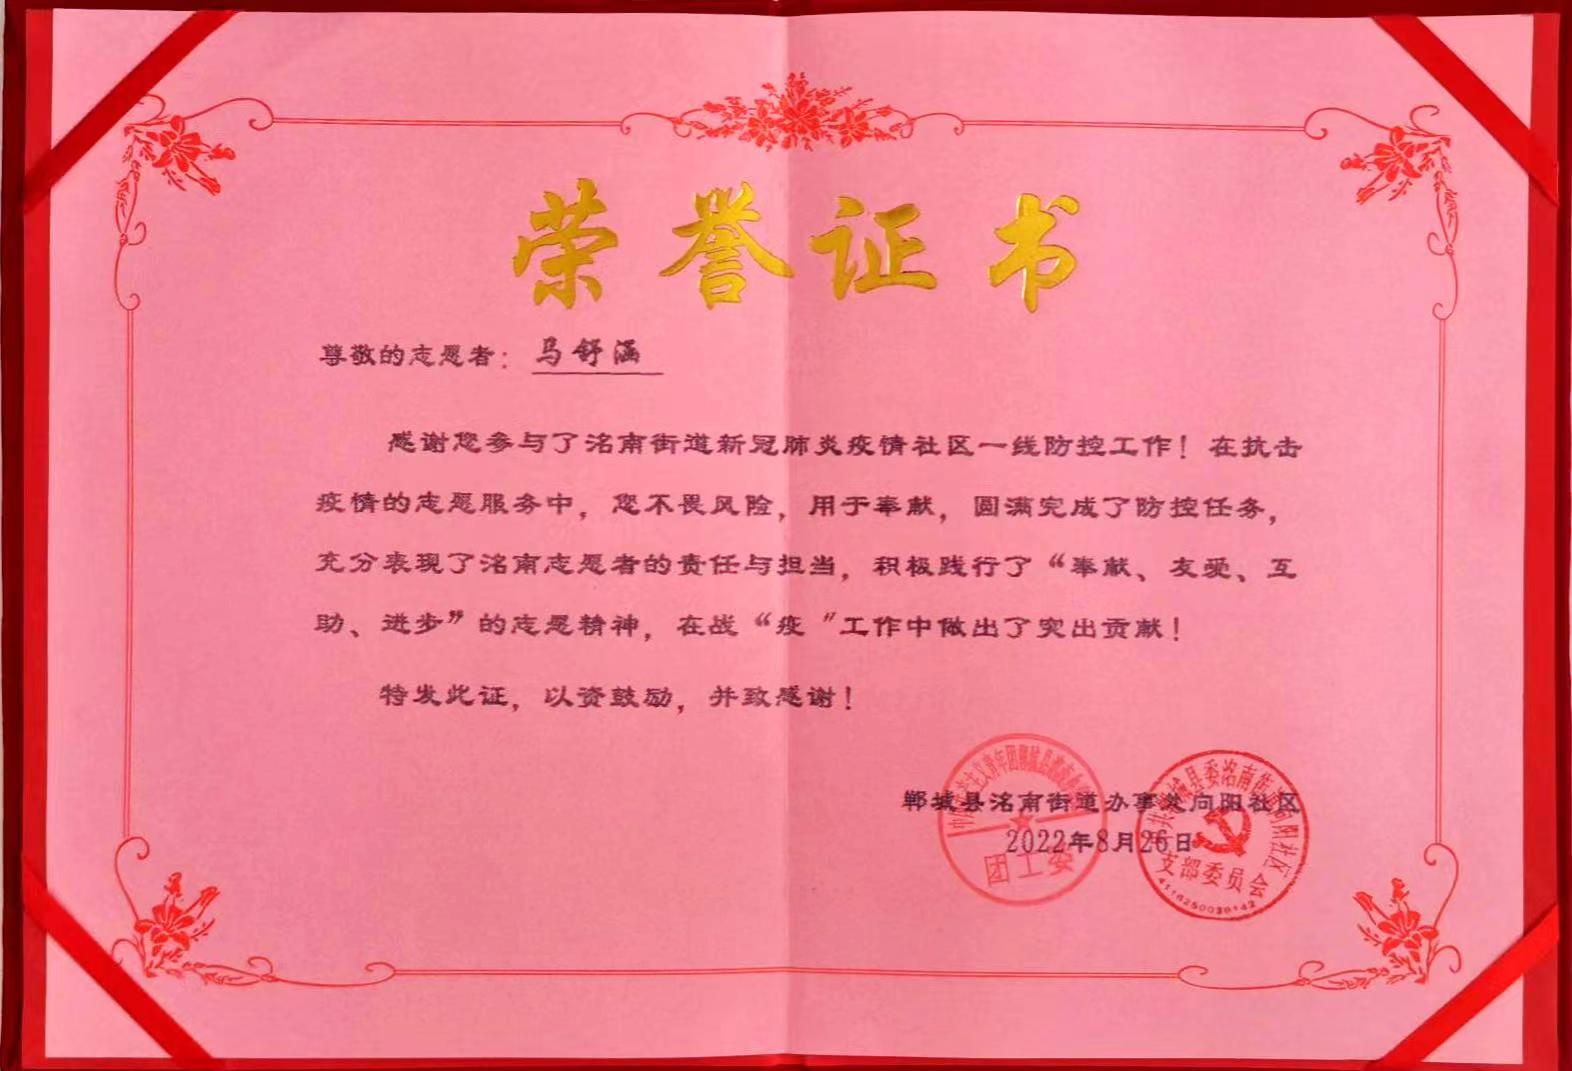 荣誉证书
尊敬的志愿者：马舒涵
感谢您参与了洺南街道新冠肺炎疫情社区一线防控工作！在抗击
疫情的志愿服务中，您不畏风险，用于奉献，圆满完成了防控任务，
充分表现了洺南志愿者的责任与担当，积极践行了“奉献、友爱、互
助、进步”的志愿精神，在战“疫”工作中做出了突出贡献！
特发此证，以资鼓励，并致感谢！
郸城县洺南街道办事处向阳社区
2022年8月26日
团工委
支部委员会